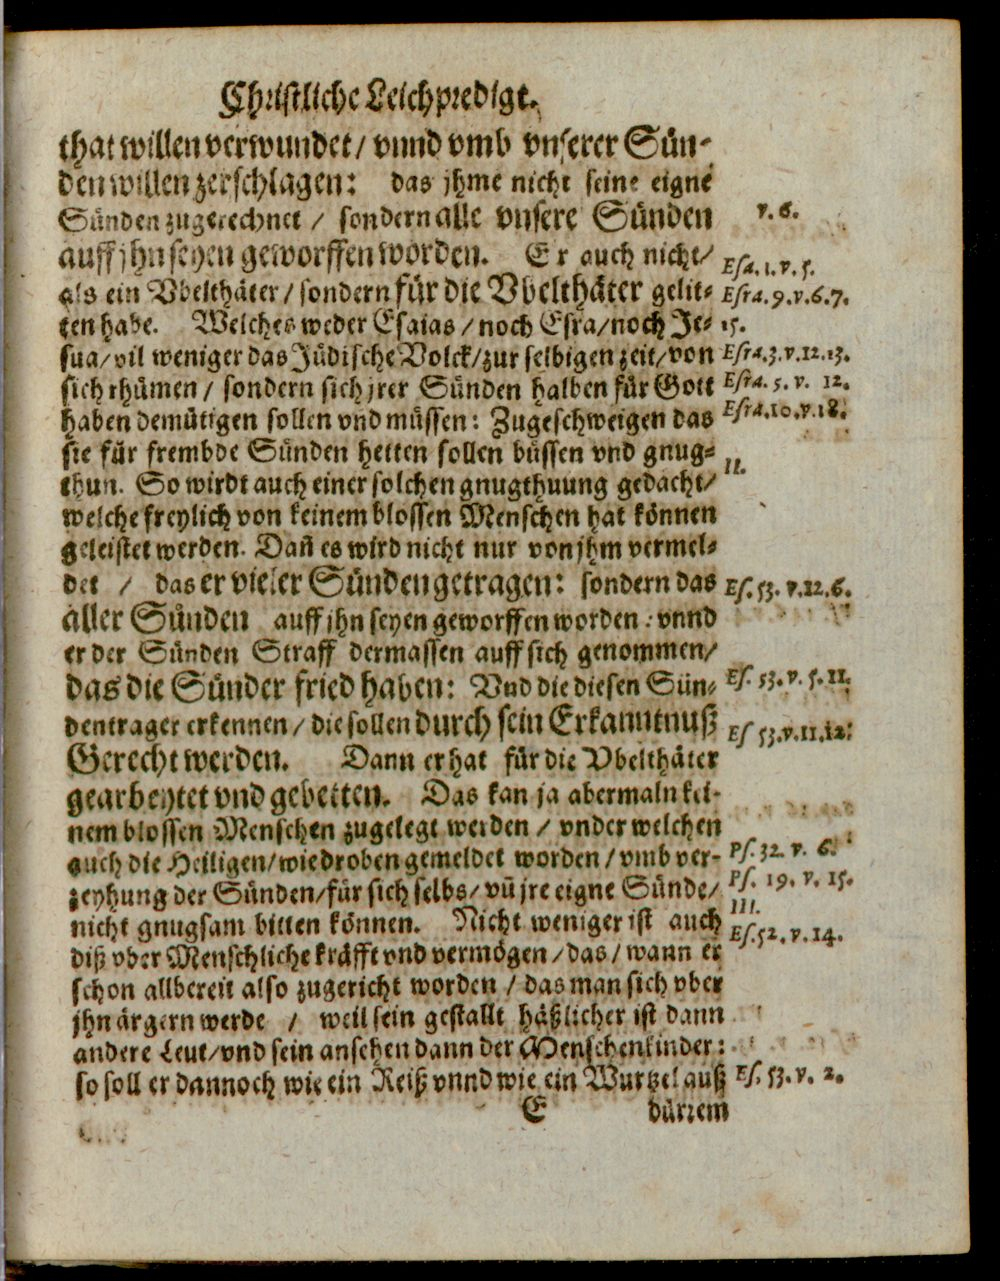 Christliche Leichpredigt.
that willen verwundet / vnnd vmb vnserer Sün-
den willen zerschlagen: das jhme nicht seine eigne
Sünden zugerechnet / sondern alle vnsere Sünden
v. 6.
auff jhn seyen geworffen worden. Er auch nicht /
Esa. 1. v. 5.
als ein Vbelthäter / sondern für die Vbelthäter gelit-
Esra. 9. v. 6. 7.
ten habe. Welches weder Esaias / noch Esra / noch Je-
15.
sua / vil weniger das Jüdische Volck / zur selbigen zeit / von
Esra. 3. v. 12. 13.
sich rhümen / sondern sich jrer Sünden halben für Gott
Esra. 5. v. 12.
haben demütigen sollen vnd müssen: Zugeschweigen das
Esra. 10. v. 18.
sie für frembde Sünden hetten sollen büssen vnd gnug-
II.
thun. So wirdt auch einer solchen gnugthuung gedacht /
welche freylich von keinem blossen Menschen hat können
geleistet werden. Dañ es wird nicht nur von jhm vermel-
det / das er vieler Sünden getragen: sondern das
Es. 53. v. 12. 6.
aller Sünden auff jhn seyen geworffen worden: vnnd
er der Sünden Straff dermassen auff sich genommen /
das die Sünder fried haben: Vnd die diesen Sün-
Es. 53. v. 5. 11.
dentrager erkennen / die sollen durch sein Erkanntnuß
Es 53. v. 11. 12.
Gerecht werden. Dann er hat für die Vbelthäter
gearbeytet vnd gebetten. Das kan ja abermaln kei-
nem blossen Menschen zugelegt werden / vnder welchen
auch die Heiligen / wie droben gemeldet worden / vmb ver-
Ps. 32. v. 6.
zeyhung der Sünden / für sich selbs / vñ jre eigne Sünde /
Ps. 19. v. 15.
nicht gnugsam bitten können. Nicht weniger ist auch
III.
Es. 52. v. 14.
diß vber Menschliche kräfft vnd vermögen / das / wann er
schon allbereit also zugericht worden / das man sich vber
jhn ärgern werde / weil sein gestallt häßlicher ist dann
andere Leut / vnd sein ansehen dann der Menschenkinder:
so soll er dannoch wie ein Reiß vnnd wie ein Wurtzel auß
Es. 53. v. 2.
E dürrem